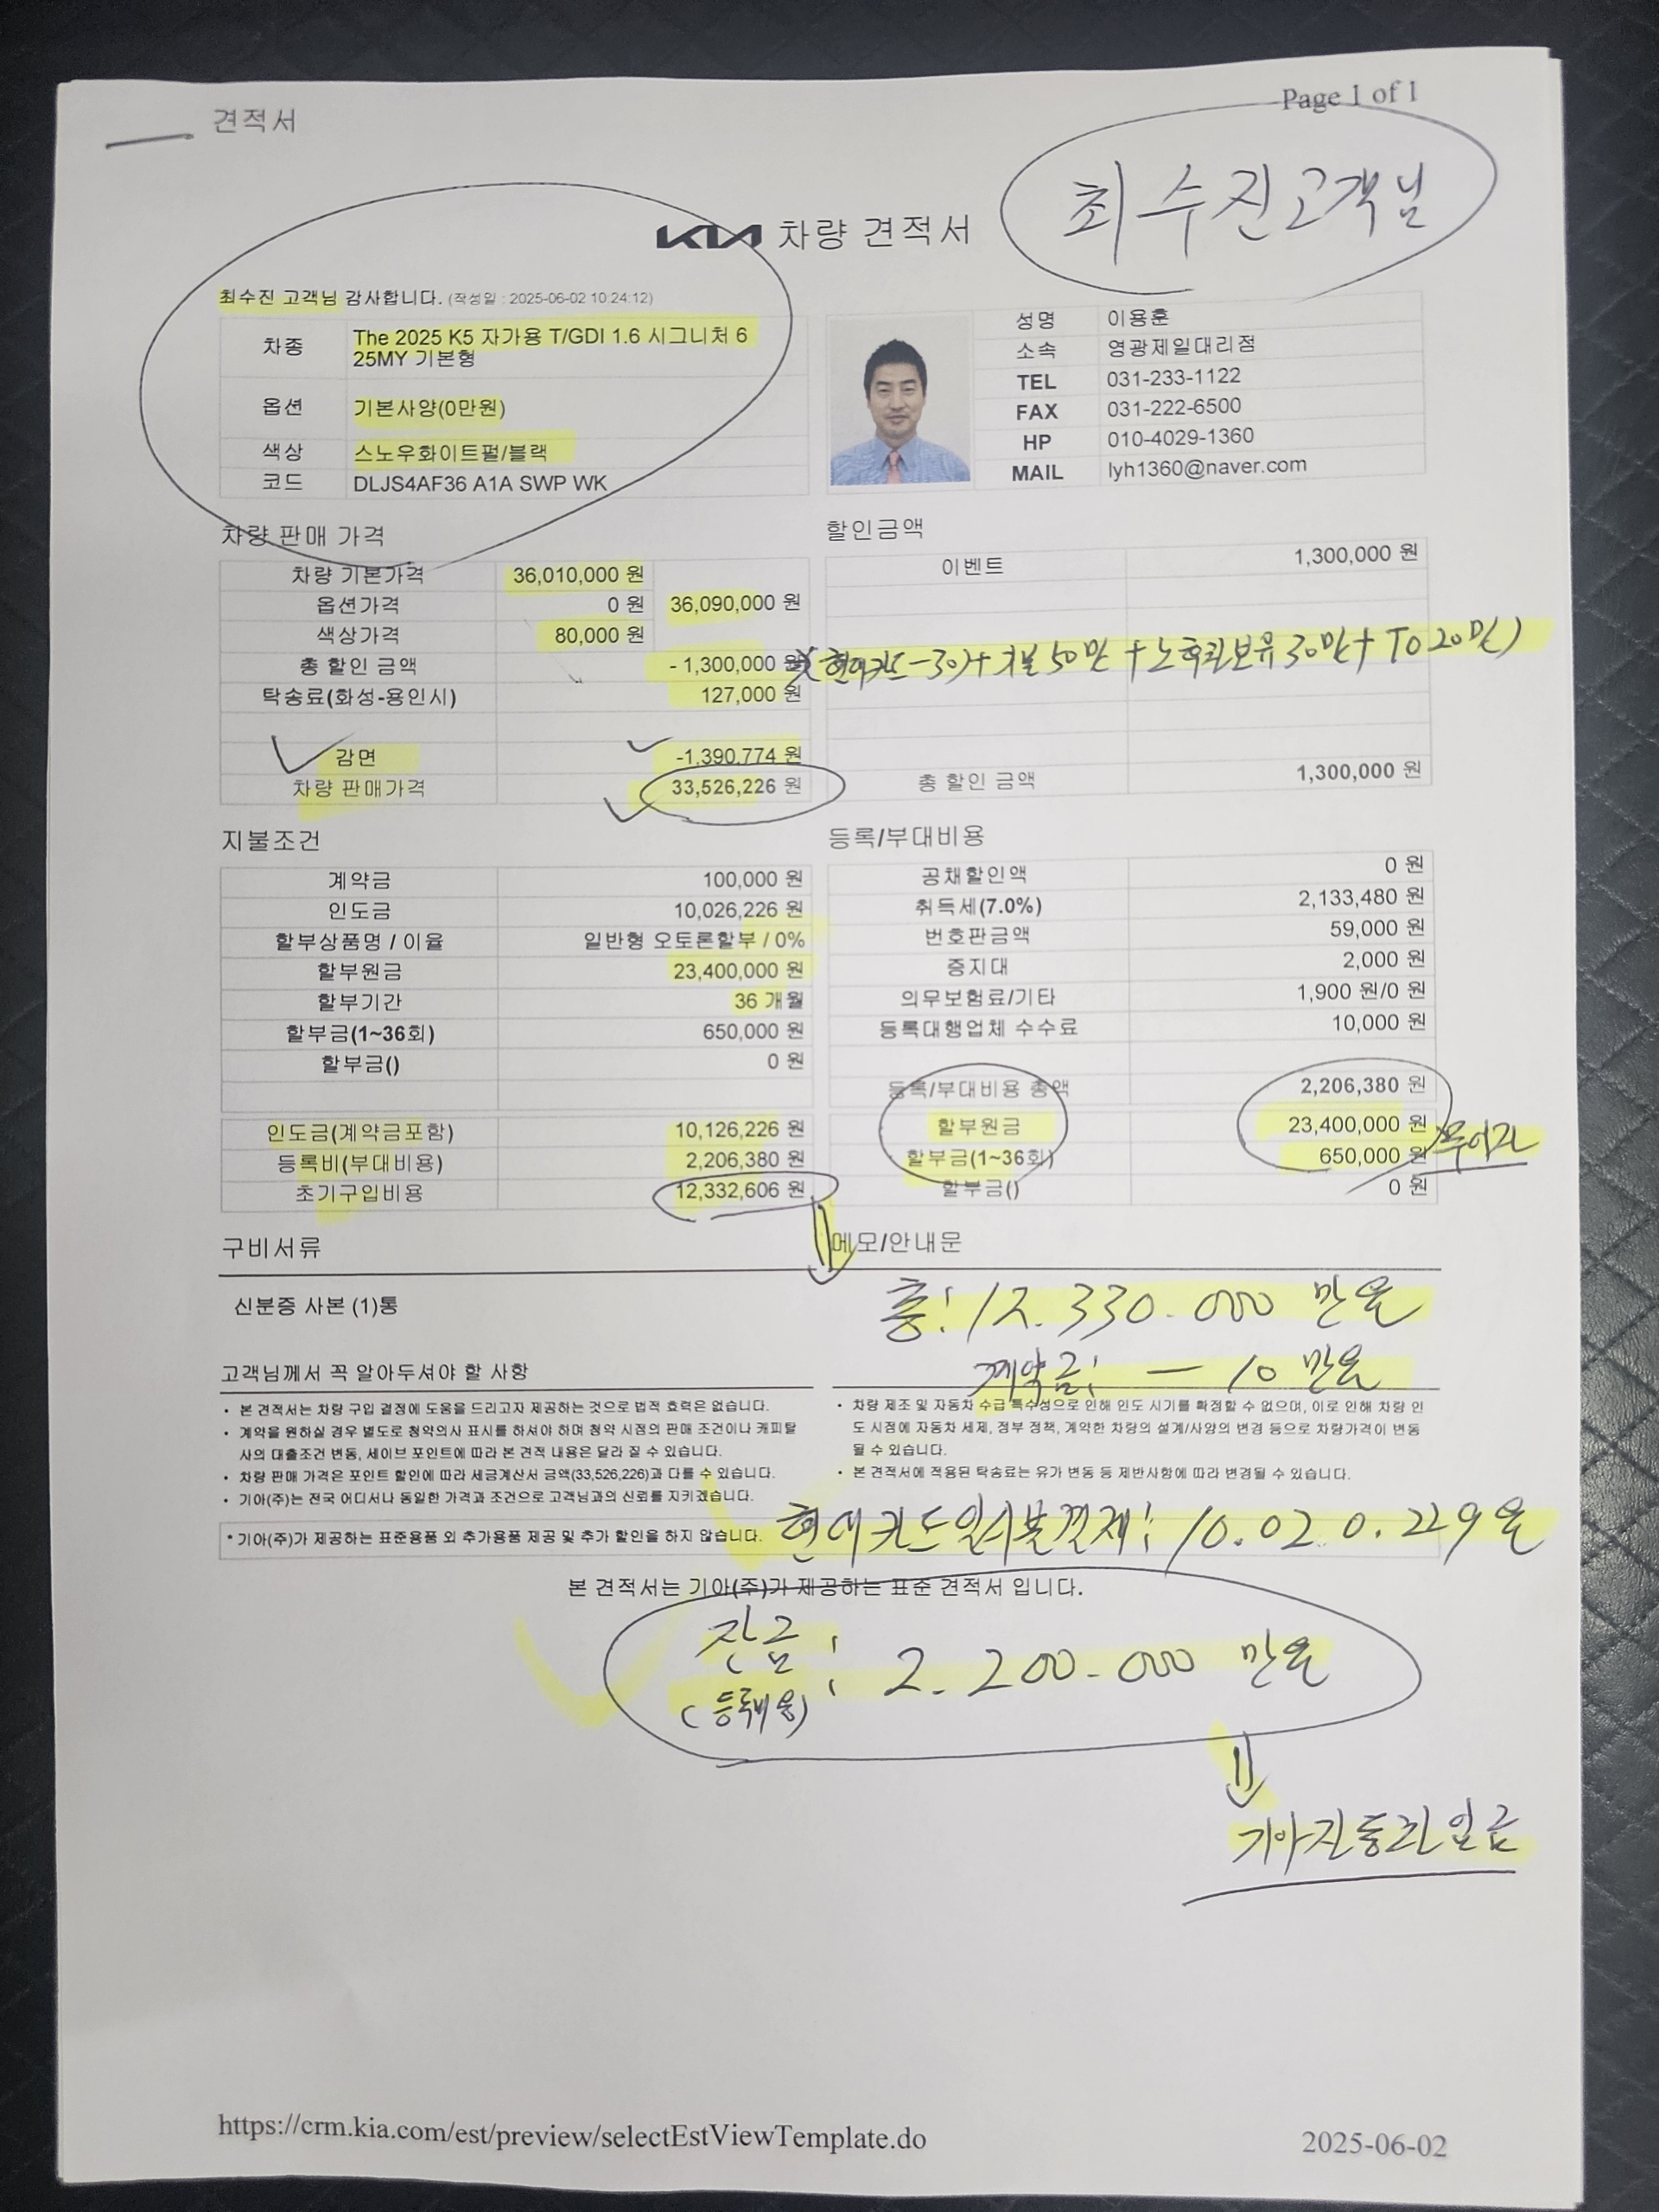 견적서
Page 1 of 1
KIA 차량 견적서
최수진고객님
최수진 고객님 감사합니다. (작성일 : 2025-06-02 10:24:12)
차종 The 2025 K5 자가용 T/GDI 1.6 시그니처 6
25MY 기본형
옵션 기본사양(0만원)
색상 스노우화이트펄/블랙
코드 DLJS4AF36 A1A SWP WK
성명 이용훈
소속 영광제일대리점
TEL 031-233-1122
FAX 031-222-6500
HP 010-4029-1360
MAIL lyh1360@naver.com
차량 판매 가격
차량 기본가격 36,010,000 원
옵션가격 0 원 36,090,000 원
색상가격 80,000 원
총 할인 금액 - 1,300,000 원
탁송료(화성-용인시) 127,000 원
감면 -1,390,774 원
차량 판매가격 33,526,226 원
할인금액
이벤트 1,300,000 원
(현대카드-30)+ 50만 + 노후차보유 30만 + TO 20만)
총 할인 금액 1,300,000 원
지불조건
계약금 100,000 원
인도금 10,026,226 원
할부상품명 / 이율 일반형 오토론할부 / 0%
할부원금 23,400,000 원
할부기간 36 개월
할부금(1~36회) 650,000 원
할부금() 0 원
인도금(계약금포함) 10,126,226 원
등록비(부대비용) 2,206,380 원
초기구입비용 12,332,606 원
등록/부대비용
공채할인액 0 원
취득세(7.0%) 2,133,480 원
번호판금액 59,000 원
증지대 2,000 원
의무보험료/기타 1,900 원/0 원
등록대행업체 수수료 10,000 원
등록/부대비용 총액 2,206,380 원
할부원금 23,400,000 원
할부금(1~36회) 650,000 원
무이자
할부금() 0 원
구비서류
신분증 사본 (1)통
메모/안내문
총: 12.330.000 만원
계약금: — 10 만원
고객님께서 꼭 알아두셔야 할 사항
• 본 견적서는 차량 구입 결정에 도움을 드리고자 제공하는 것으로 법적 효력은 없습니다.
• 계약을 원하실 경우 별도로 청약의사 표시를 하셔야 하며 청약 시점의 판매 조건이나 캐피탈
사의 대출조건 변동, 세이브 포인트에 따라 본 견적 내용은 달라 질 수 있습니다.
• 차량 판매 가격은 포인트 할인에 따라 세금계산서 금액(33,526,226)과 다를 수 있습니다.
• 기아(주)는 전국 어디서나 동일한 가격과 조건으로 고객님과의 신뢰를 지키겠습니다.
• 차량 제조 및 자동차 수급 특수성으로 인해 인도 시기를 확정할 수 없으며, 이로 인해 차량 인
도 시점에 자동차 세제, 정부 정책, 계약한 차량의 설계/사양의 변경 등으로 차량가격이 변동
될 수 있습니다.
• 본 견적서에 적용된 탁송료는 유가 변동 등 제반사항에 따라 변경될 수 있습니다.
* 기아(주)가 제공하는 표준용품 외 추가용품 제공 및 추가 할인을 하지 않습니다.
현대카드일시불결제: 10.020.229원
본 견적서는 기아(주)가 제공하는 표준 견적서 입니다.
잔금 : 2.200.000 만원
(등록비용)
기아자동차입금
https://crm.kia.com/est/preview/selectEstViewTemplate.do
2025-06-02